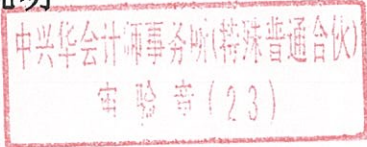 中兴华会计师事务所(特殊普通合伙)
实验章(23)